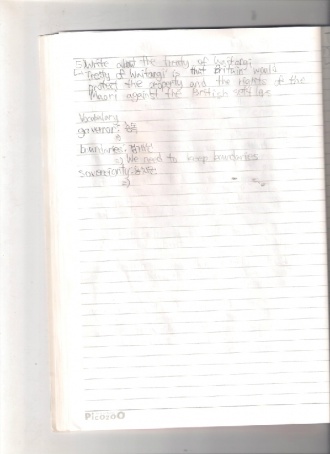 5. Write about the treaty of Waitangi
Treaty of Waitangi is that Britain would
protect the property and the rights of the
Maori against the British settlers
Vocabulary
governor:
boundaries:
=) We need to keep boundaries
soverignty:
=)
Picoto